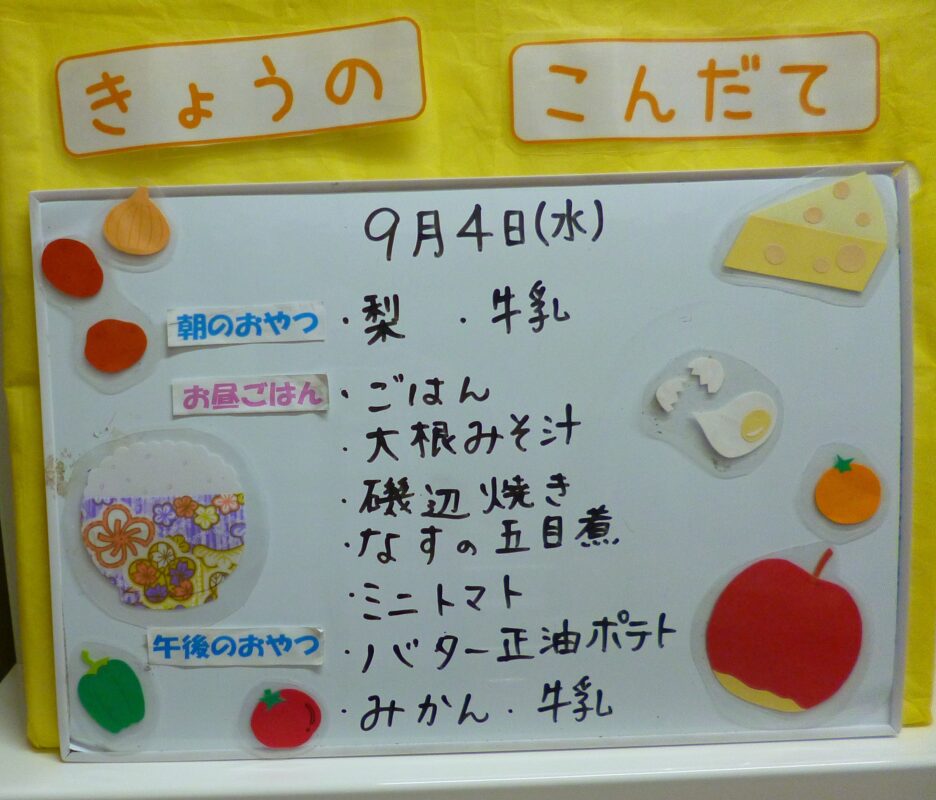 きょうの こんだて
9月4日(水)
朝のおやつ ・梨 ・牛乳
お昼ごはん ・ごはん
・大根みそ汁
・磯辺焼き
・なすの五目煮
・ミニトマト
午後のおやつ ・バター正油ポテト
・みかん・牛乳